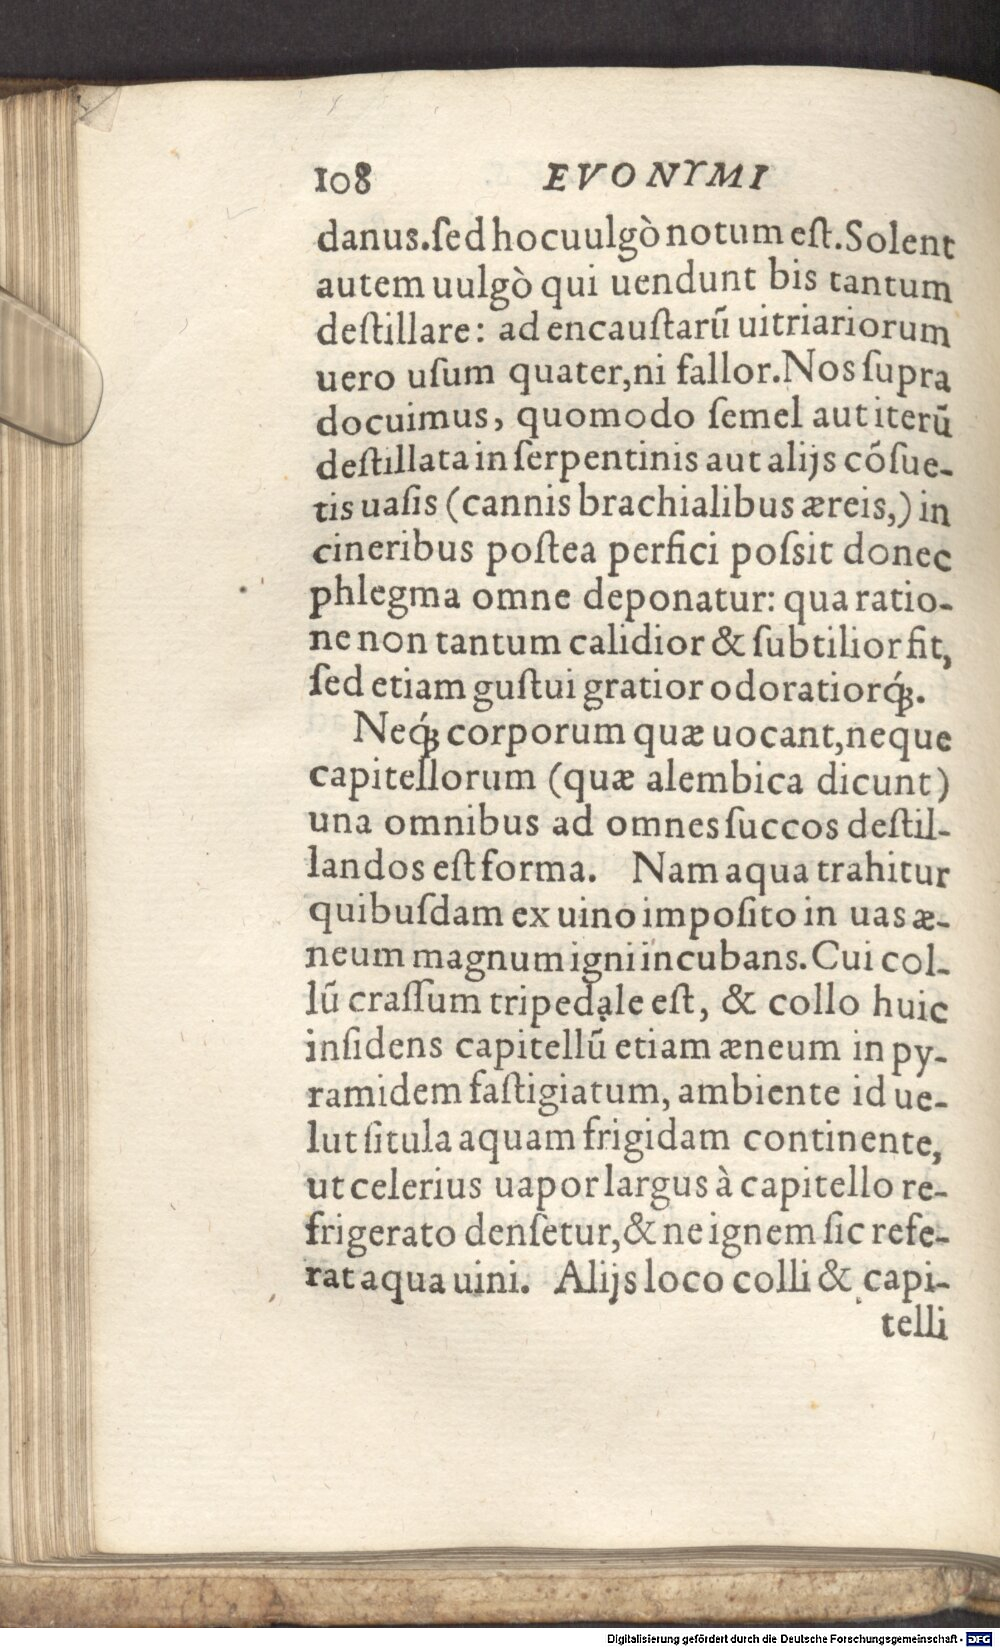 108 EVONYMI
danus. sed hoc uulgò notum eſt. Solent
autem uulgò qui uendunt bis tantum
deſtillare: ad encauſtarũ uitriariorum
uero uſum quater, ni fallor. Nos ſupra
docuimus, quomodo ſemel aut iterũ
deſtillata in ſerpentinis aut alijs cõſue-
tis uaſis (cannis brachialibus æreis,) in
cineribus poſtea perfici poſsit donec
phlegma omne deponatur: qua ratio-
ne non tantum calidior & ſubtilior fit,
ſed etiam guſtui gratior odoratiorq́ꝫ.
Neq́ꝫ corporum quæ uocant, neque
capitellorum (quæ alembica dicunt)
una omnibus ad omnes ſuccos deſtil-
landos eſt forma. Nam aqua trahitur
quibuſdam ex uino impoſito in uas æ-
neum magnum igni incubans. Cui col-
lũ craſſum tripedale eſt, & collo huic
inſidens capitellũ etiam æneum in py-
ramidem faſtigiatum, ambiente id ue-
lut ſitula aquam frigidam continente,
ut celerius uapor largus à capitello re-
frigerato denſetur, & ne ignem ſic refe-
rat aqua uini. Alijs loco colli & capi-
telli
Digitalisierung gefördert durch die Deutsche Forschungsgemeinschaft - DFG